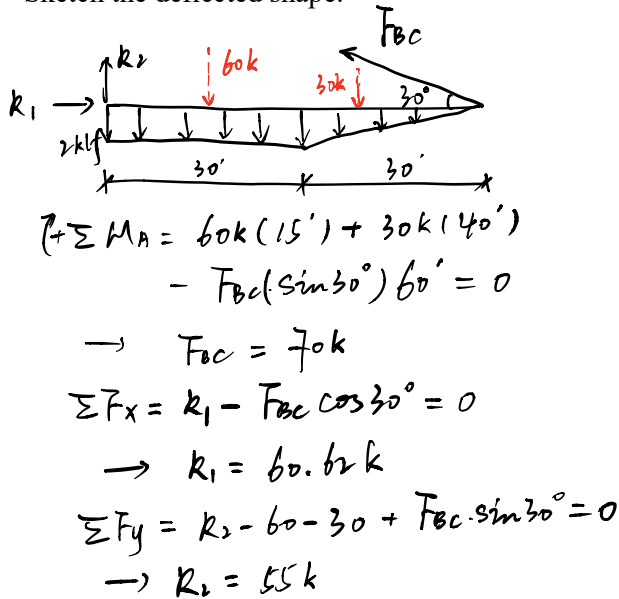 Sketch the deflected shape.
FBC
R2
60k
30k
30°
R1
2klf
30'
30'
+ΣMA = 60k(15') + 30k(40')
- FBC(sin30°)60' = 0
→ FBC = 70k
ΣFx = R1 - FBC cos30° = 0
→ R1 = 60.62k
ΣFy = R2-60-30 + FBC.sin30° = 0
→ R2 = 55k